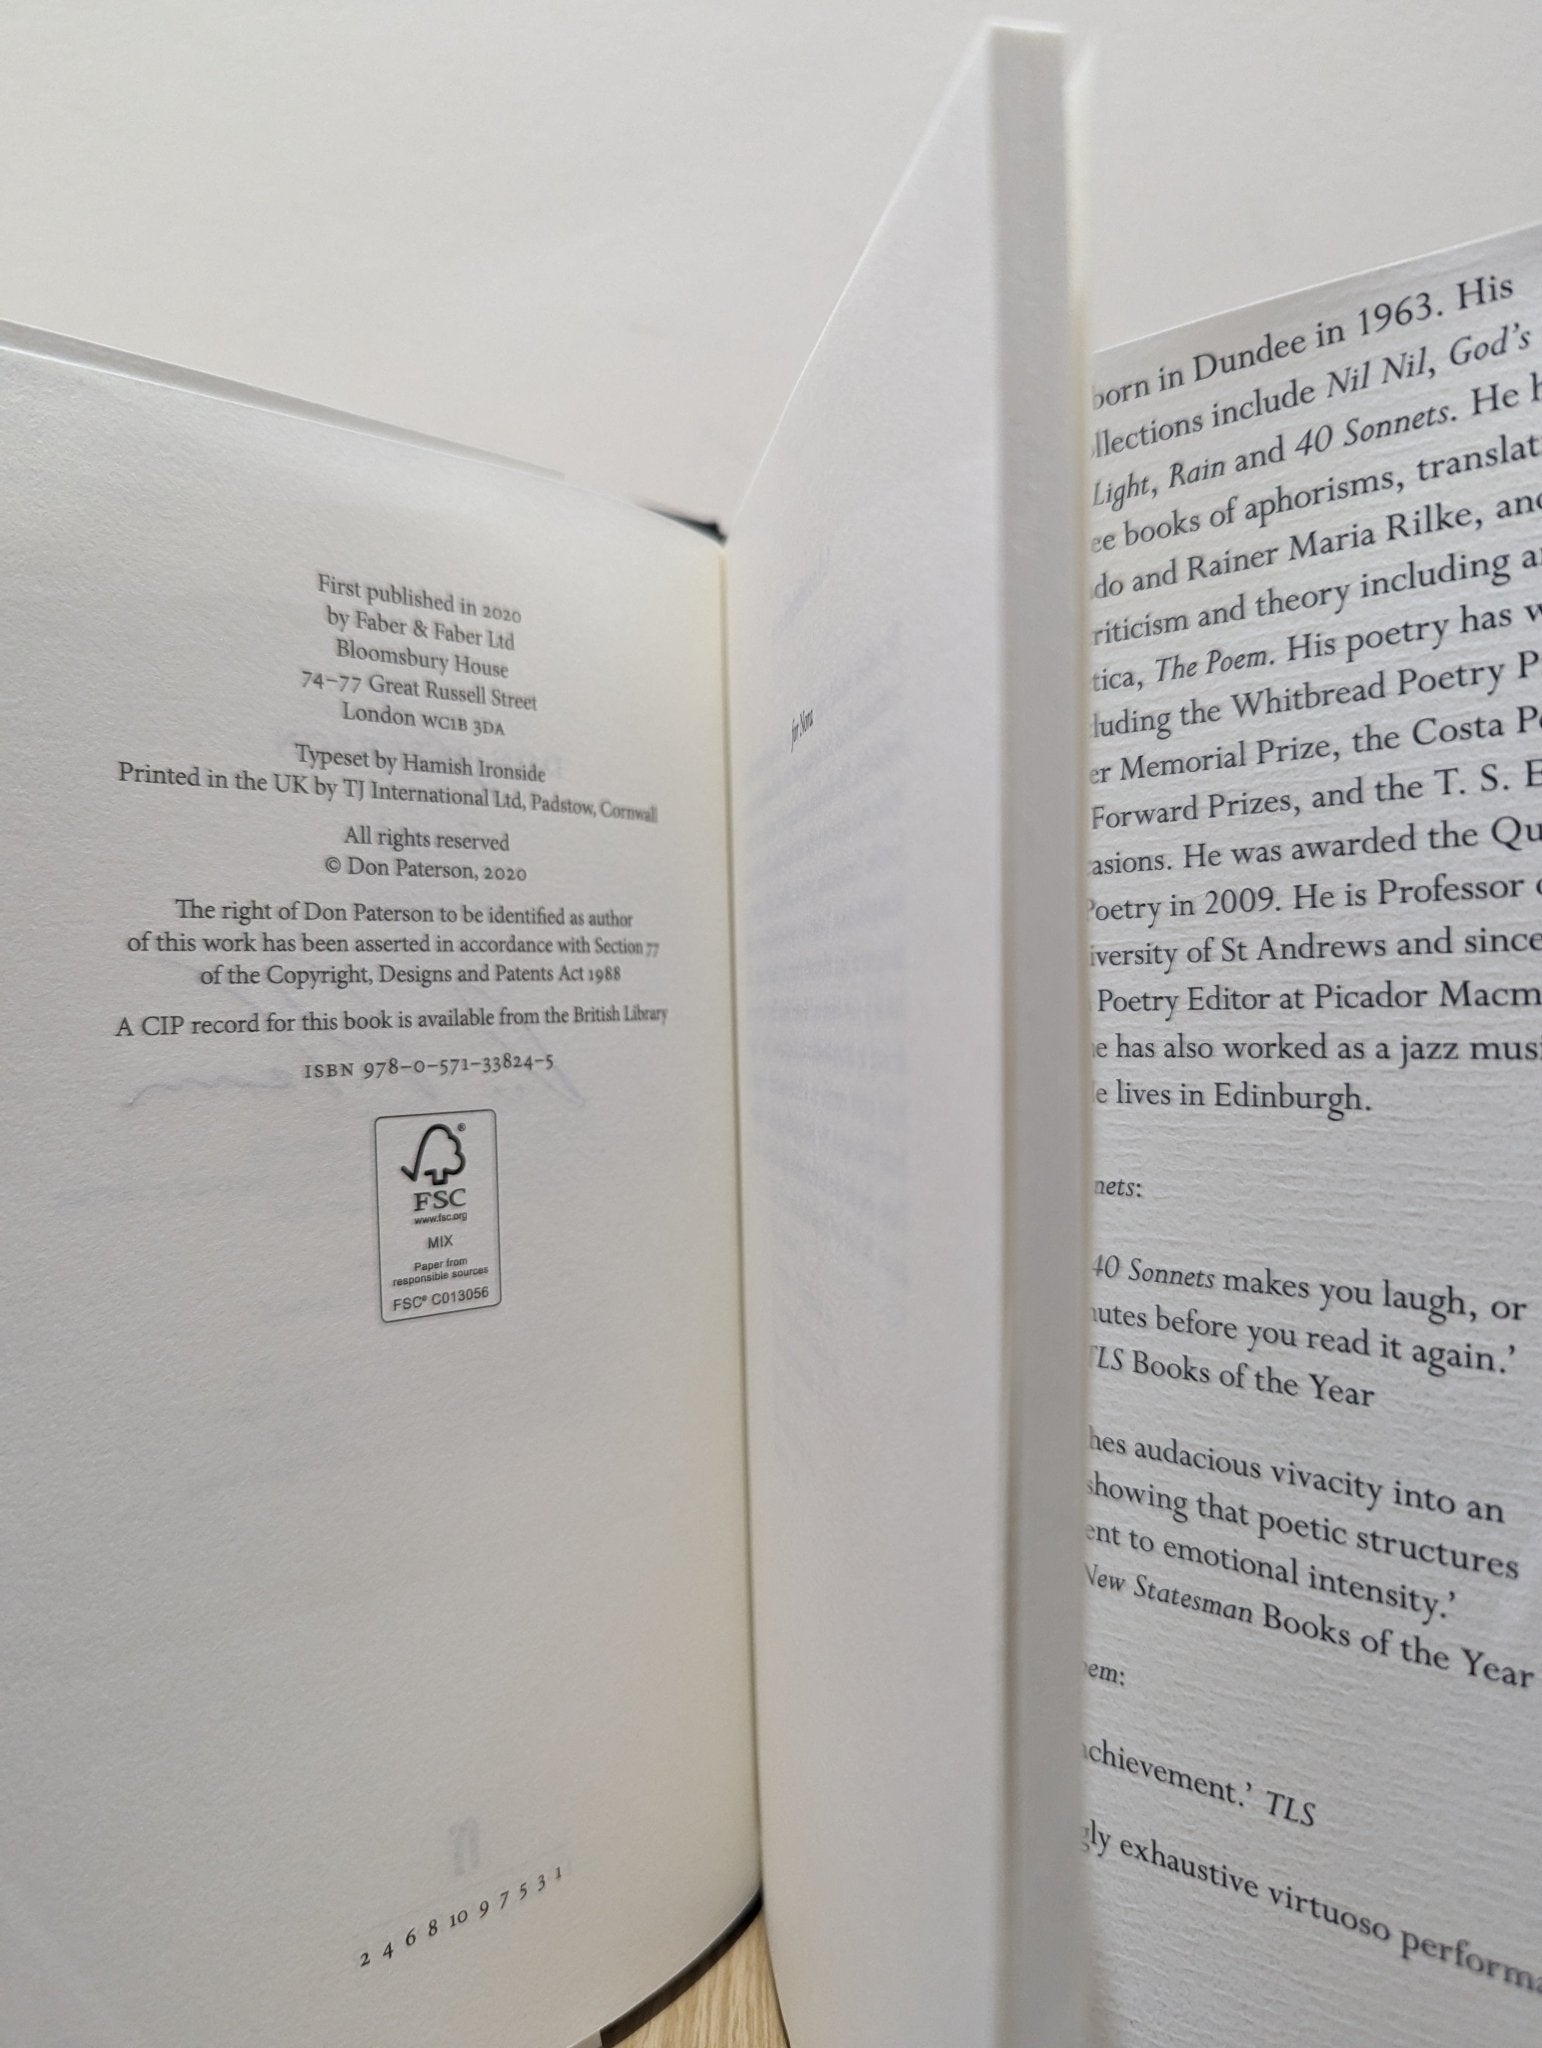 First published in 2020
by Faber & Faber Ltd
Bloomsbury House
74–77 Great Russell Street
London WC1B 3DA
Typeset by Hamish Ironside
Printed in the UK by TJ International Ltd, Padstow, Cornwall
All rights reserved
© Don Paterson, 2020
The right of Don Paterson to be identified as author
of this work has been asserted in accordance with Section 77
of the Copyright, Designs and Patents Act 1988
A CIP record for this book is available from the British Library
ISBN 978–0–571–33824–5
FSC®
www.fsc.org
MIX
Paper from
responsible sources
FSC® C013056
2 4 6 8 10 9 7 5 3 1
for Nora
born in Dundee in 1963. His
llections include Nil Nil, God's
Light, Rain and 40 Sonnets. He h
ee books of aphorisms, translat
do and Rainer Maria Rilke, and
riticism and theory including a
tica, The Poem. His poetry has w
luding the Whitbread Poetry P
er Memorial Prize, the Costa Po
Forward Prizes, and the T. S. E
asions. He was awarded the Qu
Poetry in 2009. He is Professor o
iversity of St Andrews and since
Poetry Editor at Picador Macm
e has also worked as a jazz musi
e lives in Edinburgh.
nets:
40 Sonnets makes you laugh, or
nutes before you read it again.'
TLS Books of the Year
hes audacious vivacity into an
showing that poetic structures
ent to emotional intensity.'
New Statesman Books of the Year
oem:
achievement.' TLS
gly exhaustive virtuoso performa